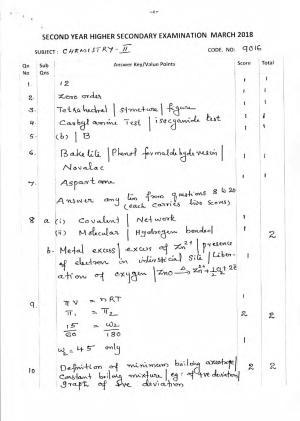 SECOND YEAR HIGHER SECONDARY EXAMINATION MARCH 2018
SUBJECT : CHEMISTRY - II CODE. NO: 9016
Qn No Sub Qns Answer Key/Value Points Score Total
1. 12 1 1
2. zero order 1 1
3. Tetrahedral | structure | figure 1 1
4. Carbylamine Test | isocyanide test 1 1
5. (b) | B 1 1
6. Bakelite | Phenol formaldehyde resin | 1 1
Novalac
7. Aspartame 1 1
Answer any ten from questions 8 to 20
(each carries two scores)
8 a (i) Covalent | Network
(ii) Molecular | Hydrogen bonded 2
b. Metal excess | excess of Zn2+ | presence
of electron in interstitial site | Liber-
ation of oxygen | ZnO
9. πV = nRT
π1 = π2 2 2
15/60 = w2/180
w2 = 45 only
10 Definition of minimum boiling azeotrope | 2 2
Constant boiling mixture | eg: of +ve deviation |
graph of +ve deviation